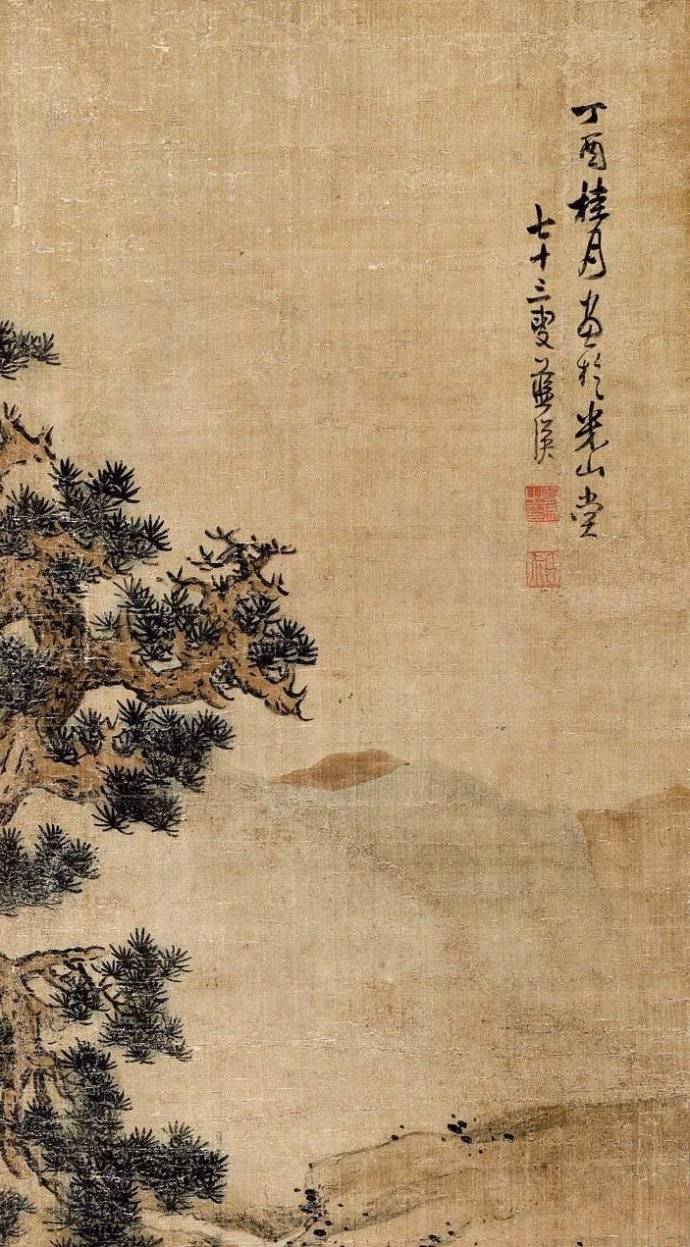 丁酉桂月画於米山堂
七十三叟蓝瑛